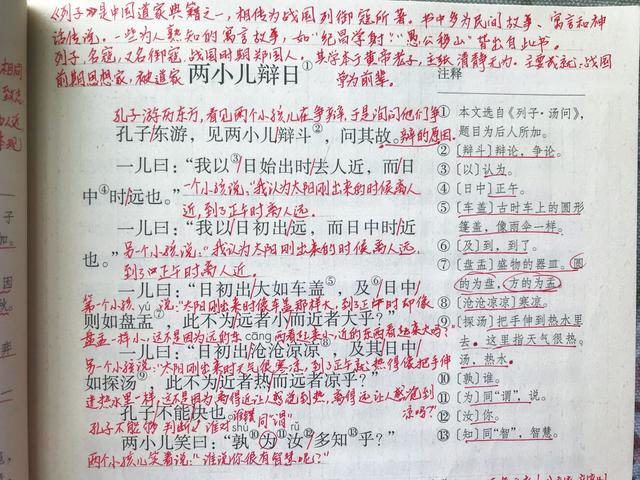 《列子》是中国道家典籍之一,相传为战国列御寇所著。书中多为民间故事、寓言和神
话传说。一些为人熟知的寓言故事,如“纪昌学射”“愚公移山”皆出自此书。
列子,名寇,又名御寇,战国时期郑国人。其学本于黄帝老子,主张清静无为。主要成就:战国
前期思想家,被道家尊为前辈。
两小儿辩日①
孔子游历东方,看见两个小孩儿在争辩,于是询问他们争
辩的原因。
孔子东游,见两小儿辩斗②,问其故。
一儿曰:“我以③日始出时去人近,而日
中④时远也。”
一个小孩说:“我认为太阳刚出来的时候离人
近,到了正午时离人远。
一儿曰:“我以日初出远,而日中时近
也。”
另一个小孩说:“我认为太阳刚出来的时候离人远,
到了正午时离人近。
一儿曰:“日初出大如车盖⑤,及⑥日中
第一个小孩 yú 说:“太阳刚出来时像车盖那样大,到了正中时却像
则如盘盂⑦,此不为远者小而近者大乎?”
盘盂一样小,这不是因为远的东 cāng 西看起来小近的东西看起来大吗?
一儿曰:“日初出沧沧凉凉⑧,及其日中
另一个小孩说:“太阳刚出来时天气很寒凉,到了正午就热得像把手伸
如探汤⑨,此不为近者热而远者凉乎?”
进热水里一样,这不是因为离得近让人感觉到热,离得远让人感觉到
凉吗?
孔子不能决也。
孔子不能够判断谁对谁错 shú 同“谓” rǔ
两小儿笑曰:“孰⑩为⑪汝⑫多知⑬乎?”
两个小孩儿笑着说:“谁说你很有智慧呢?”
注释
① 本文选自《列子·汤问》,
题目为后人所加。
② 〔辩斗〕辩论,争论。
③ 〔以〕认为。
④ 〔日中〕正午。
⑤ 〔车盖〕古时车上的圆形
篷盖,像雨伞一样。
⑥ 〔及〕到,到了。
⑦ 〔盘盂〕盛物的器皿。圆
的为盘,方的为盂。
⑧ 〔沧沧凉凉〕寒凉。
⑨ 〔探汤〕把手伸到热水里
去。这里指天气很热。
汤,热水。
⑩ 〔孰〕谁。
⑪ 〔为〕同“谓”,说。
⑫ 〔汝〕你。
⑬ 〔知〕同“智”,智慧。